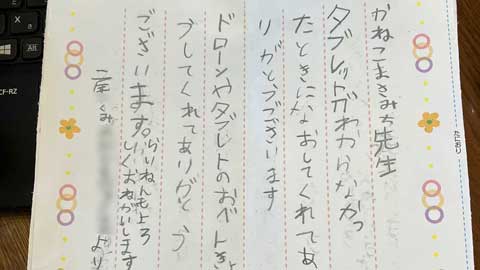 かねこまさみち先生
タブレットがわからなかっ
たときになおしてくれてあ
りがとうございます
ドローンやタブレットのおべんきょ
うしてくれてありがとう
ございます。らいねんもよろ
しくおねがいします
二年くみ
より
たにおり
CF-RZ
Alt